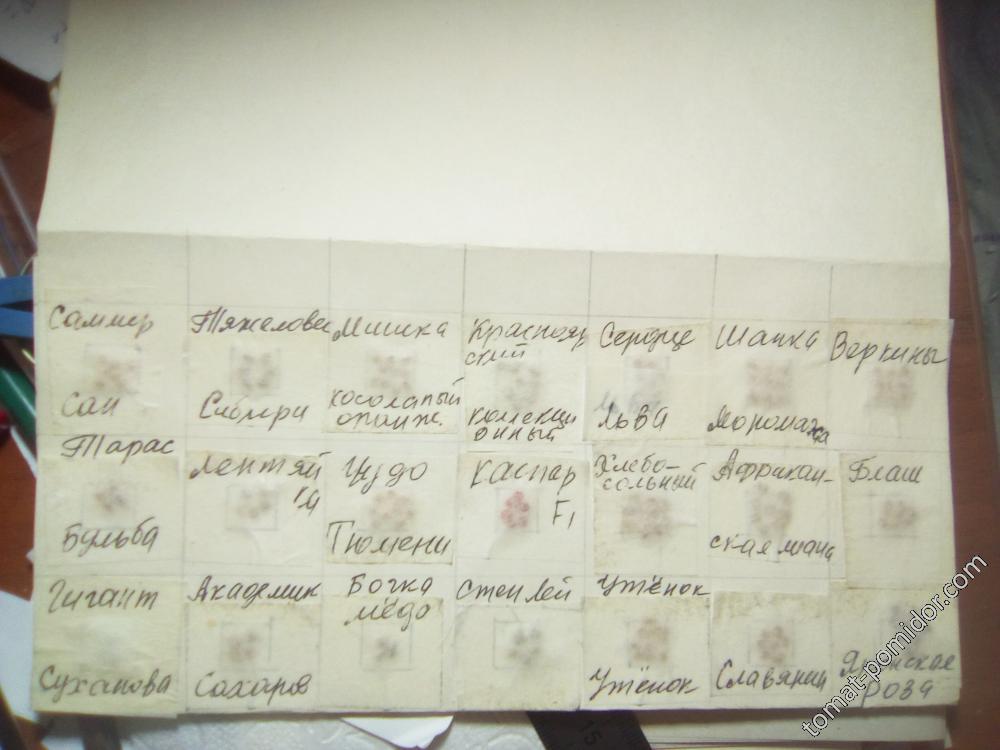 Саммер
Сан
Тяжеловес
Сибири
Мишка
косолапый
оранж.
Краснояр
ский
коллекци
онный
Сердце
Льва
Шапка
Мономаха
Веркины
Тарас
Бульба
Лентяй
ка
Чудо
Тюмени
Каспар
F1
Хлебо-
сольный
Африкан-
ская лиана
Блаш
Гигант
Суханова
Академик
Сахаров
Бочка
мёда
Стенлей
Утёнок
Утёнок
Славянин
роза
15
tomat-pomidor.com